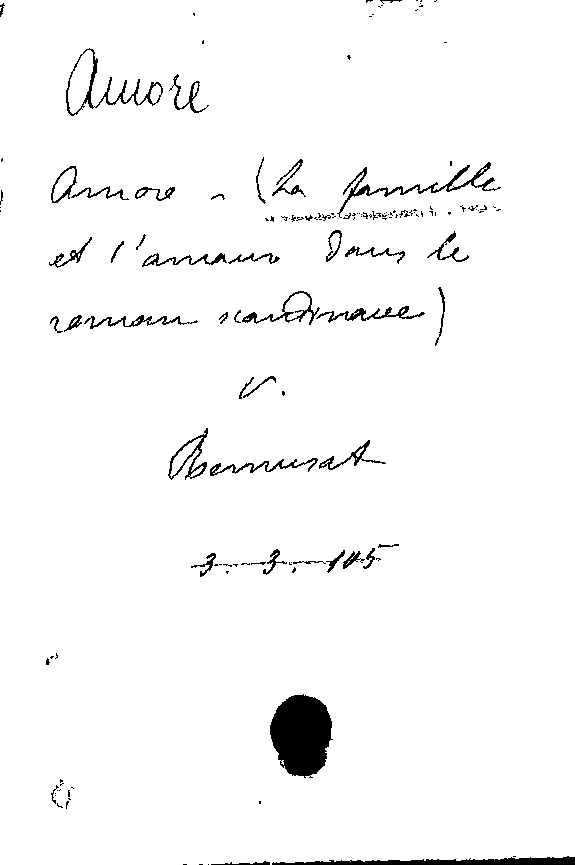 Amore
Amore - (La famille
et l'amour dans le
roman scandinave)
v.
Remusat
3. 3. 105